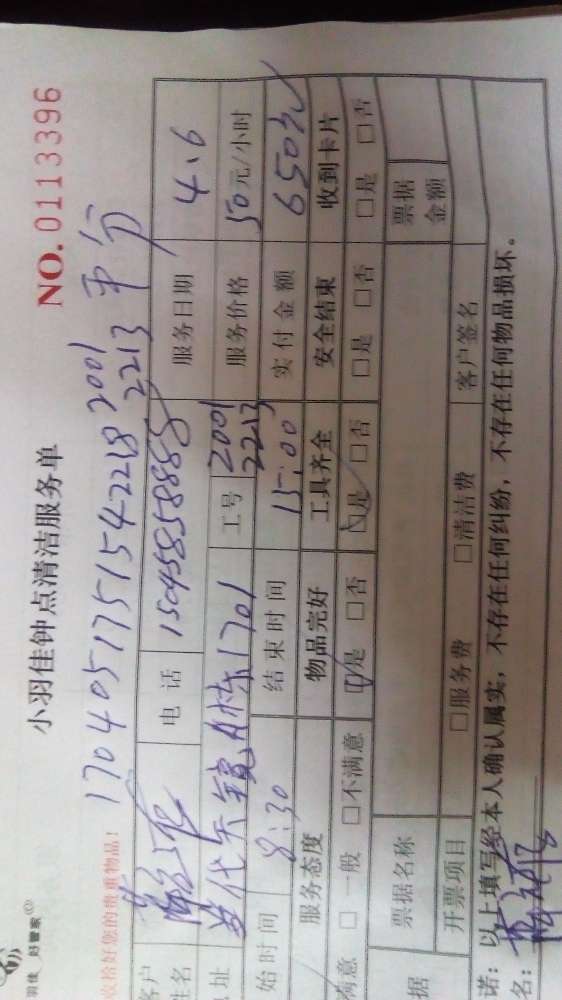 羽佳 好管家
小羽佳钟点清洁服务单
NO. 0113396
收拾好您的贵重物品!
1704051751542218 2001
2213 平分
客户
姓名
电话
15045858888
服务日期
4.6
地址
当代天镜A栋1701
工号
2001
2213
服务价格
50元/小时
始时间
8:30
结束时间
15:00
实付金额
650元
服务态度
物品完好
工具齐全
安全结束
收到卡片
满意 □一般 □不满意
□是 □否
□是 □否
□是 □否
□是 □否
据
票据名称
票据
金额
开票项目
□服务费 □清洁费
客户签名
诺:以上填写经本人确认属实,不存在任何纠纷,不存在任何物品损坏。
名: